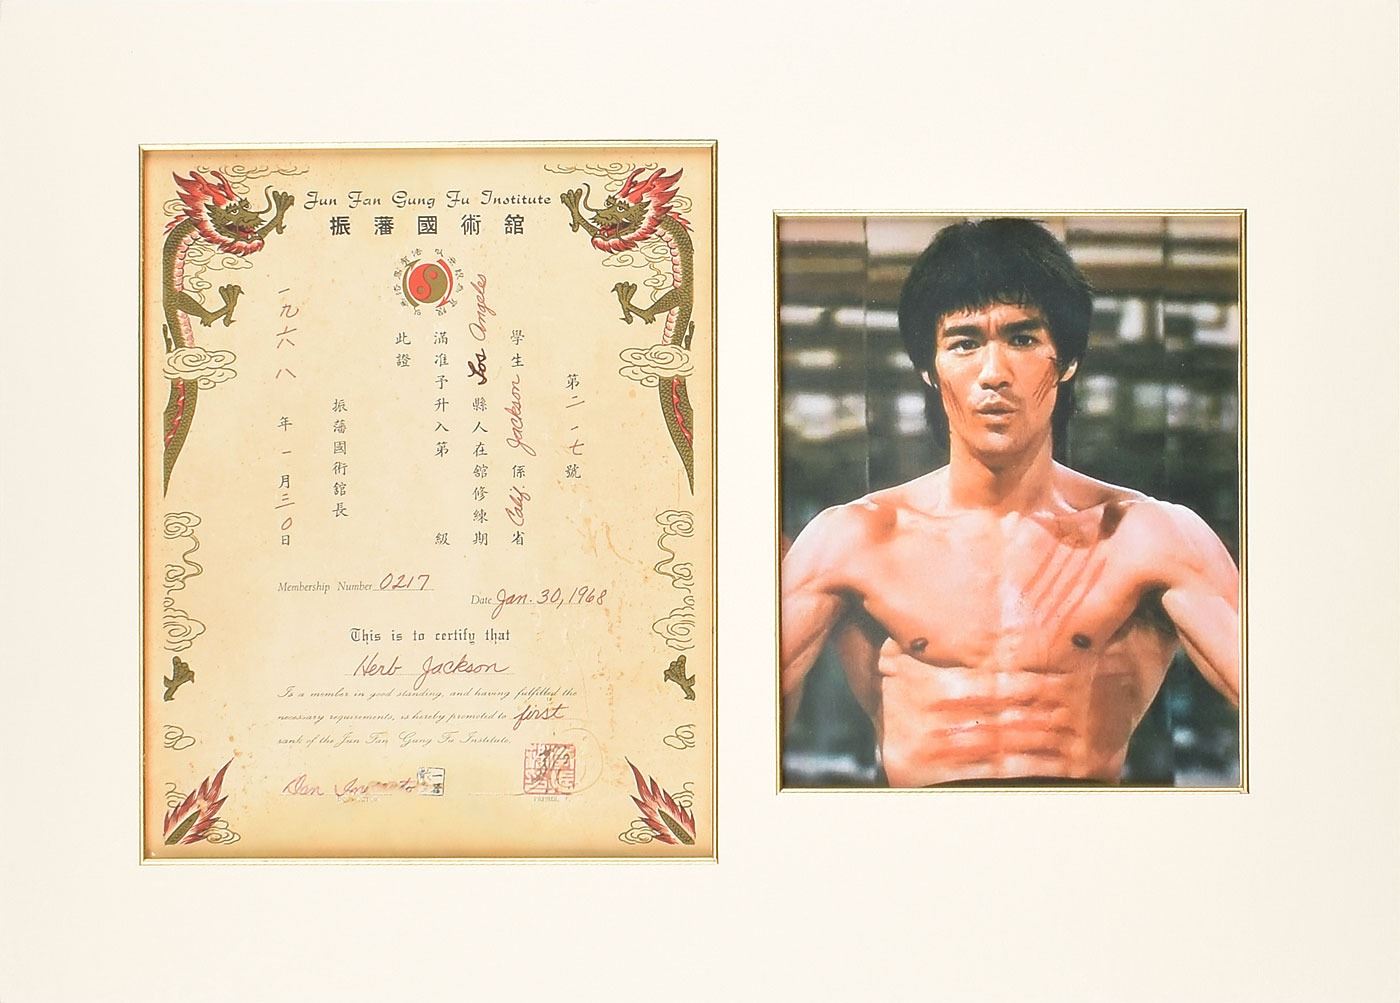 Jun Fan Gung Fu Institute
振藩國術舘
第二一七號
學生 Jackson 係 Calif. 省
Los Angeles 縣人在舘修練期
滿准予升入第 級
此證
振藩國術舘長
一九六八年一月三〇日
Membership Number 0217
Date Jan. 30, 1968
This is to certify that
Herb Jackson
Is a member in good standing, and having fulfilled the
necessary requirements, is hereby promoted to first
rank of the Jun Fan Gung Fu Institute.
Dan